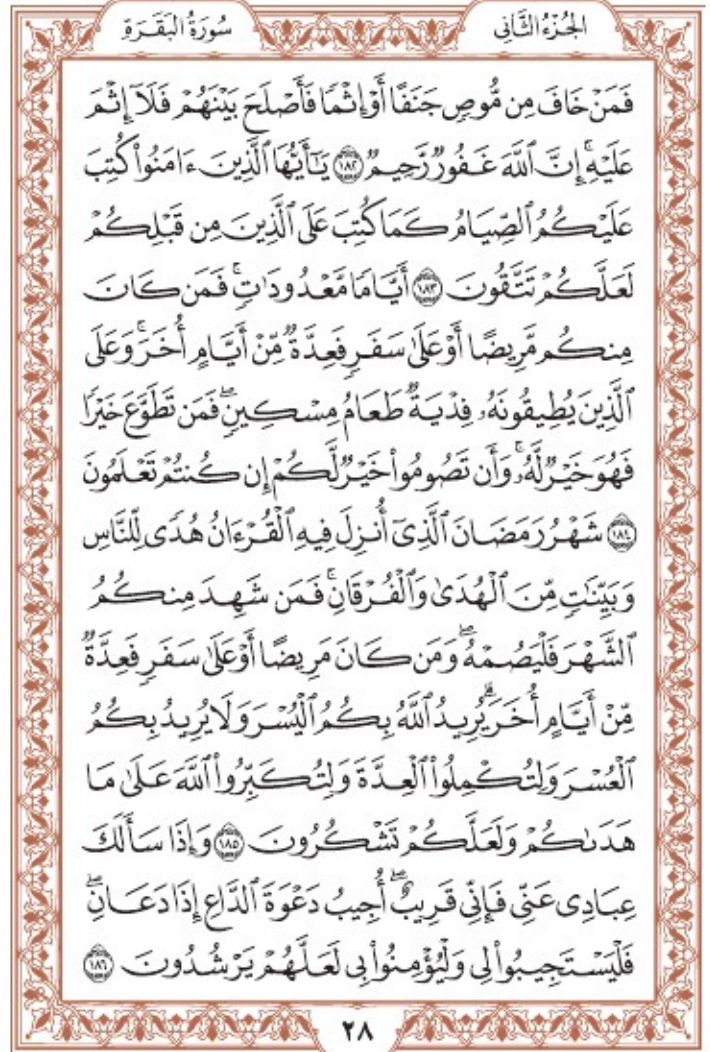 سُورَةُ البَقَرَةِ
الجُزْءُ الثَّانِي
فَمَنْ خَافَ مِن مُّوصٍ جَنَفًا أَوْ إِثْمًا فَأَصْلَحَ بَيْنَهُمْ فَلَآ إِثْمَ
عَلَيْهِۚ إِنَّ ٱللَّهَ غَفُورٌ رَّحِيمٌ ١٨٢ يَٰٓأَيُّهَا ٱلَّذِينَ ءَامَنُوا۟ كُتِبَ
عَلَيْكُمُ ٱلصِّيَامُ كَمَا كُتِبَ عَلَى ٱلَّذِينَ مِن قَبْلِكُمْ
لَعَلَّكُمْ تَتَّقُونَ ١٨٣ أَيَّامًا مَّعْدُودَٰتٍۚ فَمَن كَانَ
مِنكُم مَّرِيضًا أَوْ عَلَىٰ سَفَرٍ فَعِدَّةٌ مِّنْ أَيَّامٍ أُخَرَۚ وَعَلَى
ٱلَّذِينَ يُطِيقُونَهُۥ فِدْيَةٌ طَعَامُ مِسْكِينٍۖ فَمَن تَطَوَّعَ خَيْرًا
فَهُوَ خَيْرٌ لَّهُۥۚ وَأَن تَصُومُوا۟ خَيْرٌ لَّكُمْ إِن كُنتُمْ تَعْلَمُونَ
١٨٤ شَهْرُ رَمَضَانَ ٱلَّذِىٓ أُنزِلَ فِيهِ ٱلْقُرْءَانُ هُدًى لِّلنَّاسِ
وَبَيِّنَٰتٍ مِّنَ ٱلْهُدَىٰ وَٱلْفُرْقَانِۚ فَمَن شَهِدَ مِنكُمُ
ٱلشَّهْرَ فَلْيَصُمْهُۖ وَمَن كَانَ مَرِيضًا أَوْ عَلَىٰ سَفَرٍ فَعِدَّةٌ
مِّنْ أَيَّامٍ أُخَرَۗ يُرِيدُ ٱللَّهُ بِكُمُ ٱلْيُسْرَ وَلَا يُرِيدُ بِكُمُ
ٱلْعُسْرَ وَلِتُكْمِلُوا۟ ٱلْعِدَّةَ وَلِتُكَبِّرُوا۟ ٱللَّهَ عَلَىٰ مَا
هَدَىٰكُمْ وَلَعَلَّكُمْ تَشْكُرُونَ ١٨٥ وَإِذَا سَأَلَكَ
عِبَادِى عَنِّى فَإِنِّى قَرِيبٌۖ أُجِيبُ دَعْوَةَ ٱلدَّاعِ إِذَا دَعَانِۖ
فَلْيَسْتَجِيبُوا۟ لِى وَلْيُؤْمِنُوا۟ بِى لَعَلَّهُمْ يَرْشُدُونَ ١٨٦
٢٨